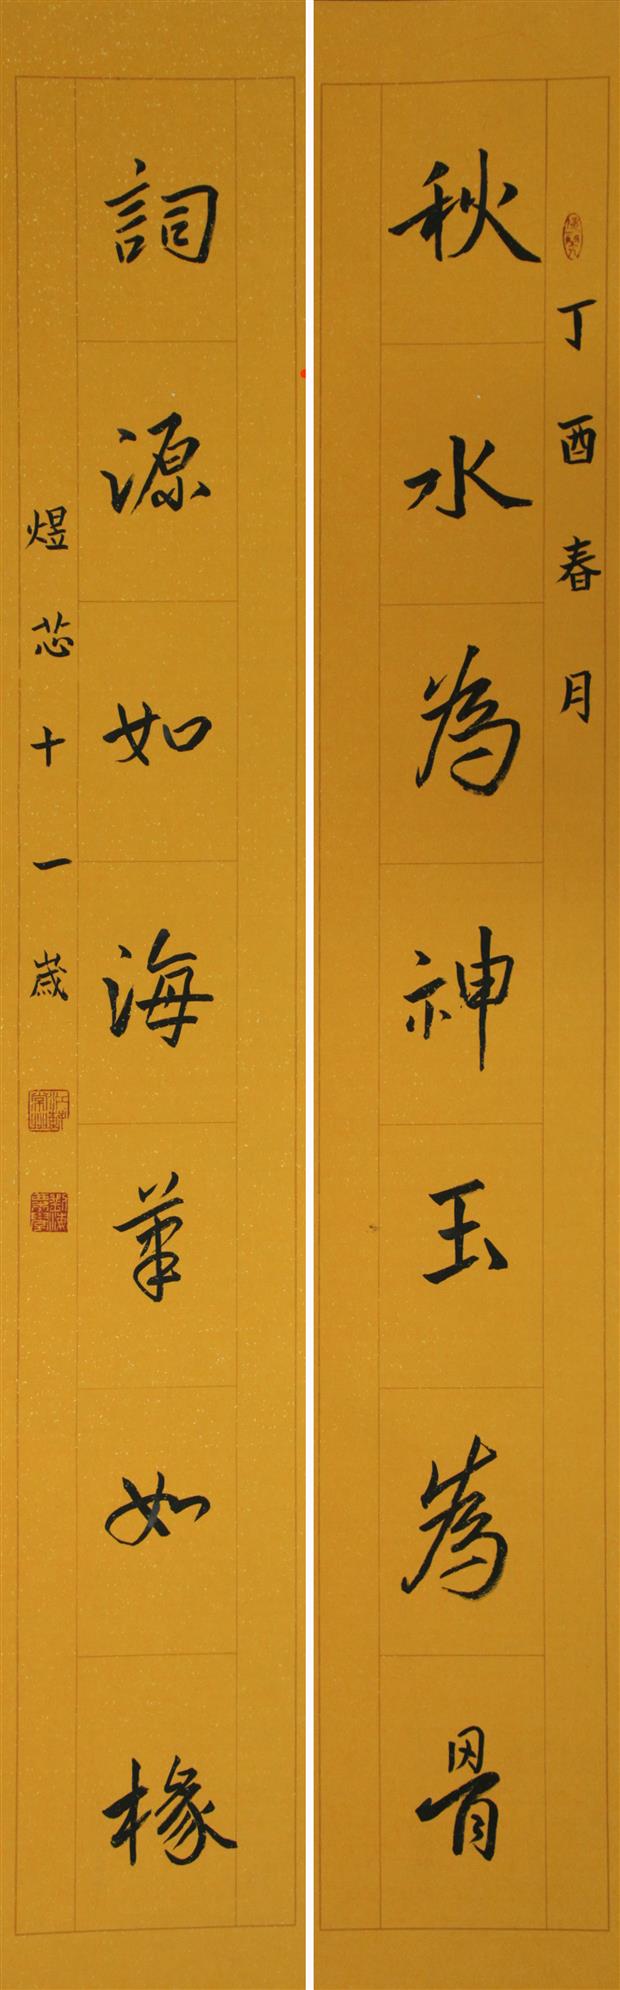 丁酉春月
秋水為神玉為骨
詞源如海筆如椽
煜芯十一歲